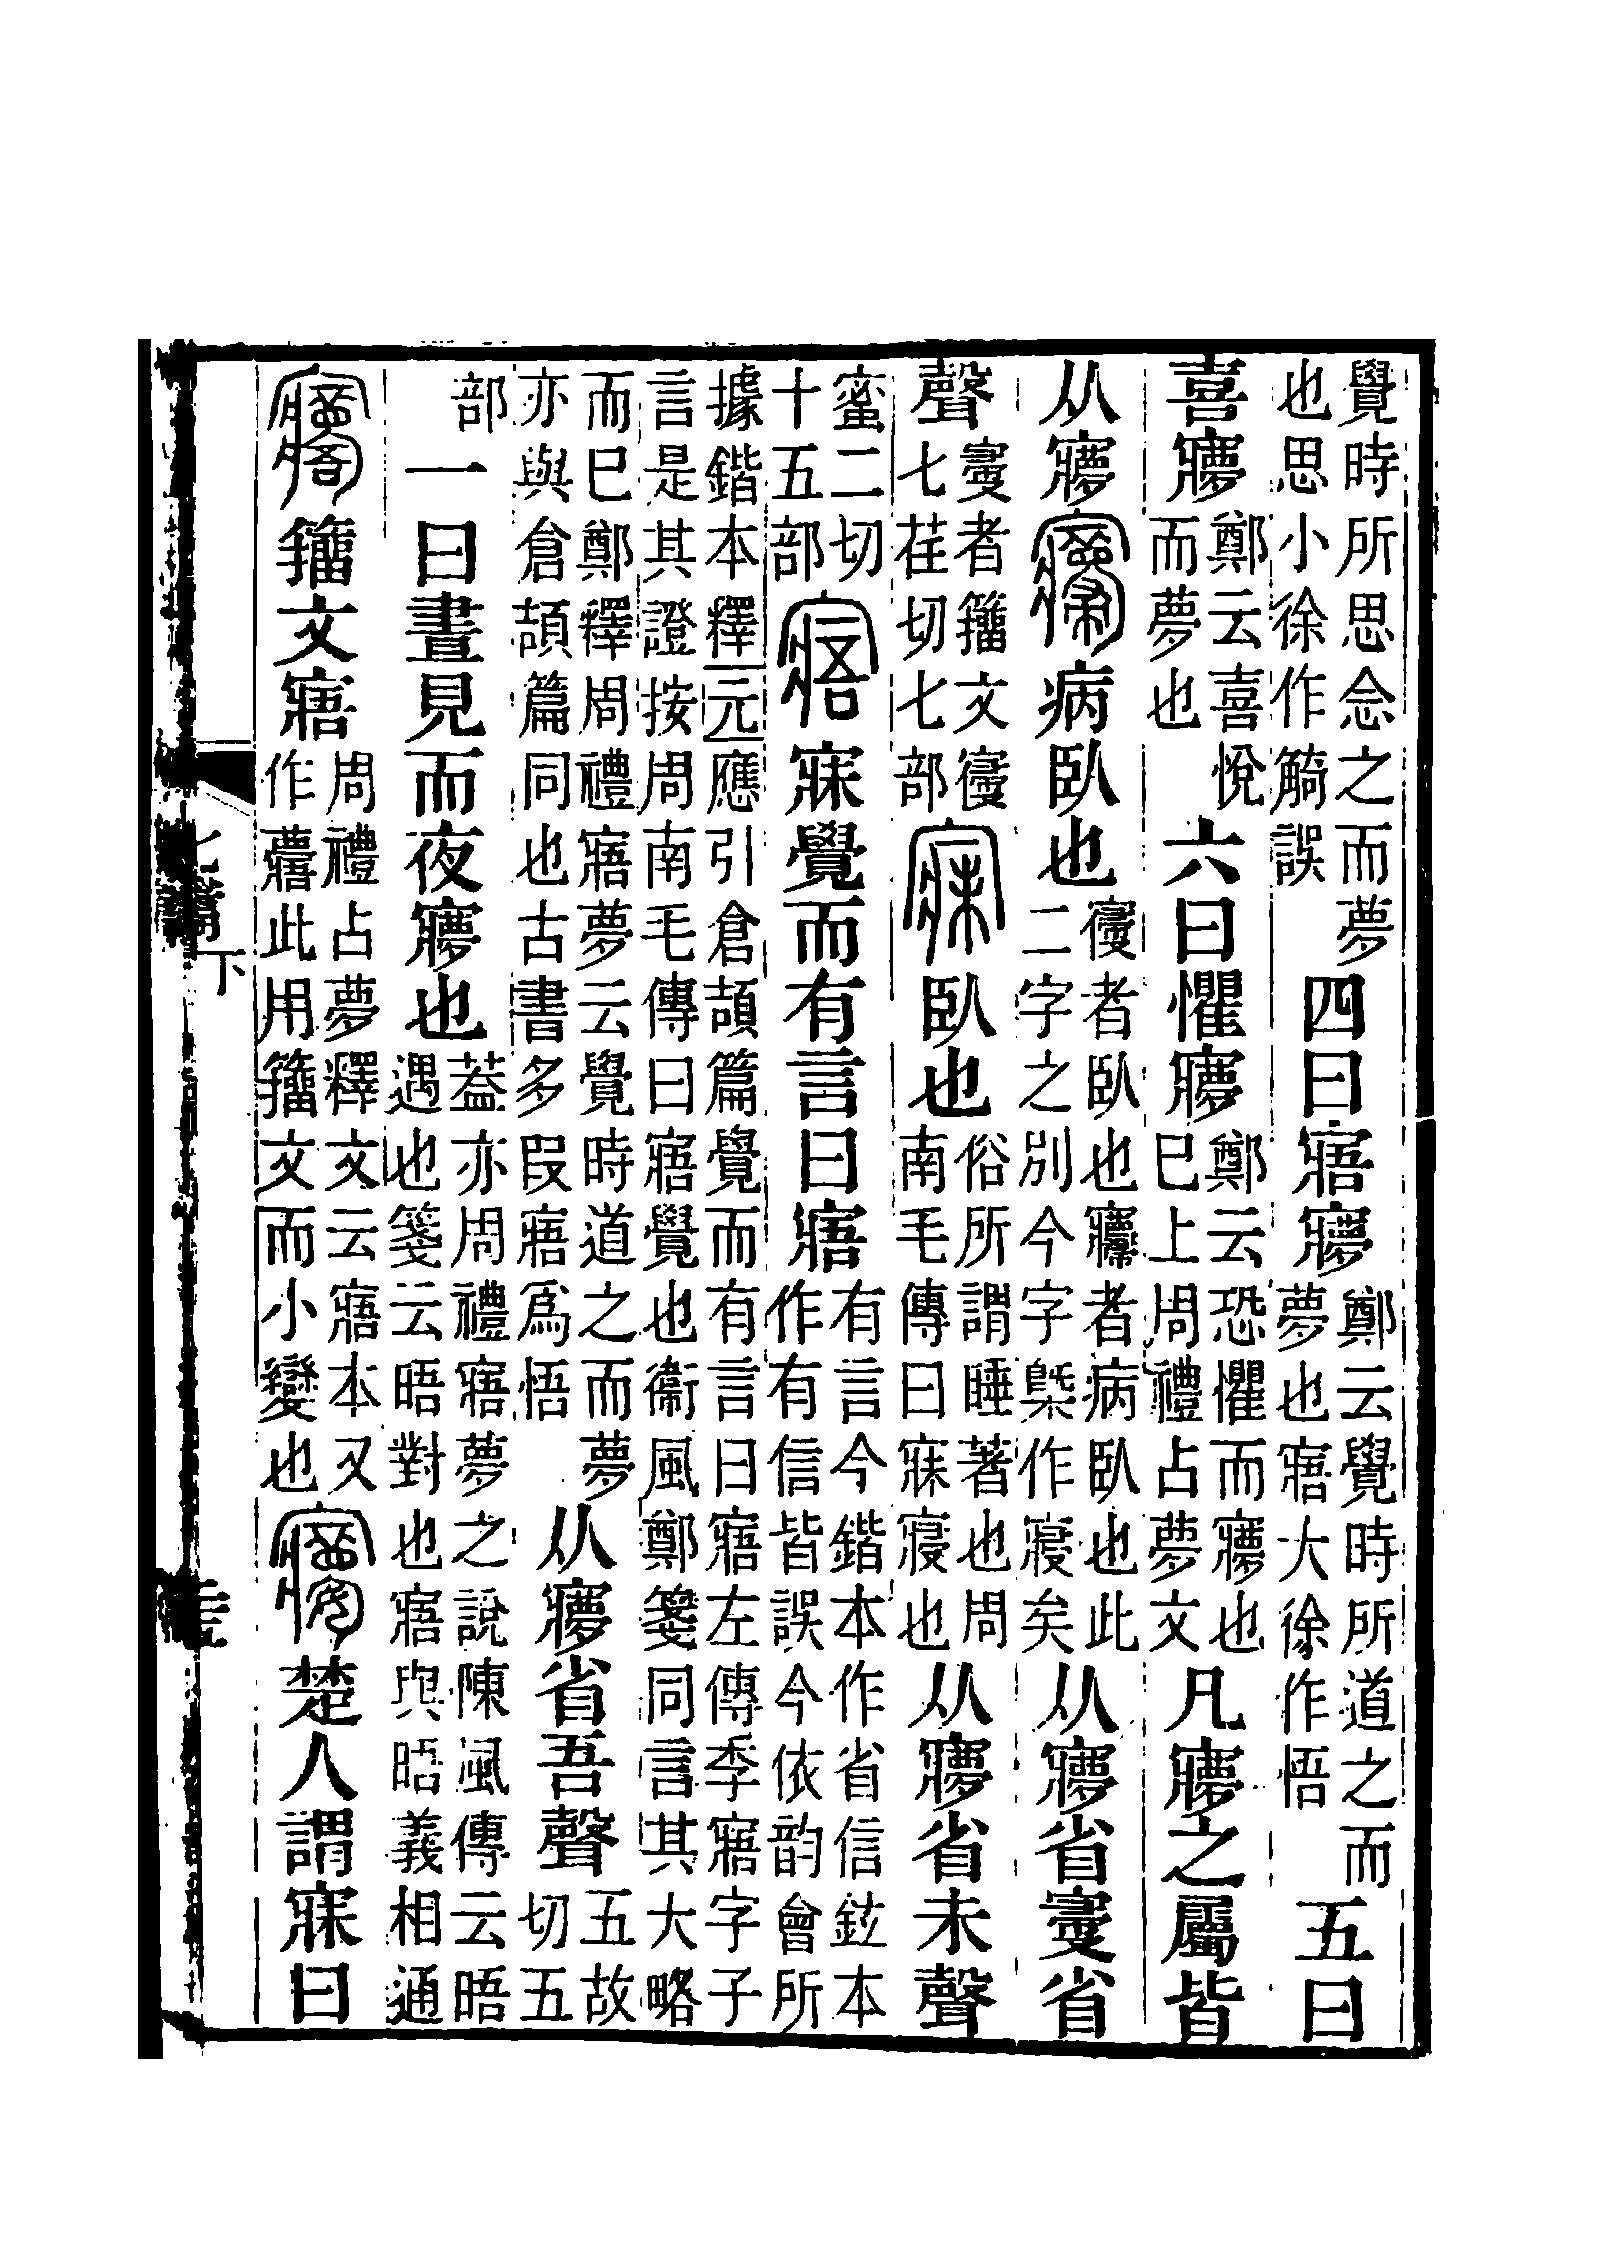 覺時所思念之而夢也思小徐作觭誤四曰寤㝱鄭云覺時所道之而夢也寤大徐作悟五曰
喜㝱鄭云喜悅而夢也六曰懼㝱鄭云恐懼而㝱也巳上周禮占夢文凡㝱之屬皆
从㝱𡪢病臥也寑者臥也𡪢者病臥也此二字之別今字槩作寢矣从㝱省𡩠省
聲𡩠者籒文寑七荏切七部寐臥也俗所謂睡著也周南毛傳曰寐寢也从㝱省未聲
蜜二切十五部寤寐覺而有言曰寤有言今鍇本作省信鉉本作有信皆誤今依韵會所
據鍇本釋元應引倉頡篇覺而有言曰寤左傳季寤字子言是其證按周南毛傳曰寤覺也衞風鄭箋同言其大略
而巳鄭釋周禮寤夢云覺時道之而夢亦與倉頡篇同也古書多叚寤爲悟从㝱省吾聲五故切五
部一曰晝見而夜㝱也葢亦周禮寤夢之說陳風傳云晤遇也箋云晤對也寤與晤義相通
籒文寤周禮占夢釋文云寤本又作此用籒文而小變也楚人謂寐曰
七篇下